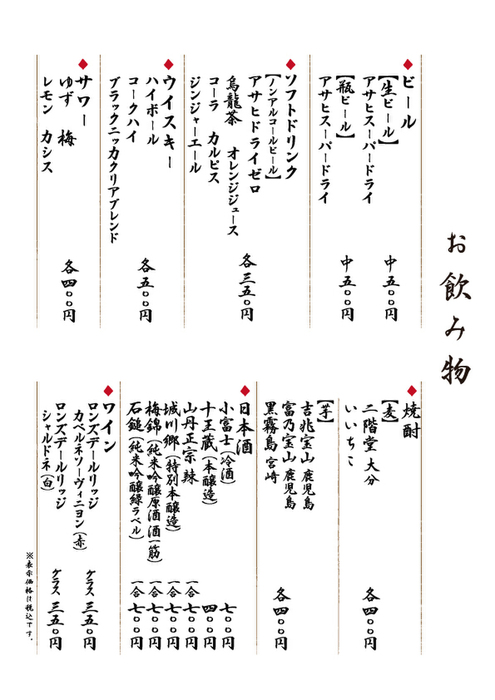 お飲み物
ビール
【生ビール】
アサヒスーパードライ 中五〇〇円
【瓶ビール】
アサヒスーパードライ 中五〇〇円
ソフトドリンク
【ノンアルコールビール】
アサヒドライゼロ
烏龍茶 オレンジジュース
コーラ カルピス
ジンジャーエール
各三五〇円
ウイスキー
ハイボール
コークハイ
ブラックニッカクリアブレンド
各五〇〇円
サワー
ゆず 梅
レモン カシス
各四〇〇円
焼酎
【麦】
二階堂 大分
いいちこ
各四〇〇円
【芋】
吉兆宝山 鹿児島
富乃宝山 鹿児島
黒霧島 宮崎
各四〇〇円
日本酒
小富士（冷酒） 七〇〇円
十王蔵（本醸造） 四〇〇円
山丹正宗 辣 一合 七〇〇円
城川郷（特別本醸造） 一合 七〇〇円
梅錦（純米吟醸原酒 酒一筋） 一合 七〇〇円
石鎚（純米吟醸緑ラベル） 一合 七〇〇円
ワイン
ロンズデールリッジ
カベルネソーヴィニヨン（赤） グラス 三五〇円
ロンズデールリッジ
シャルドネ（白） グラス 三五〇円
※表示価格は税込です。